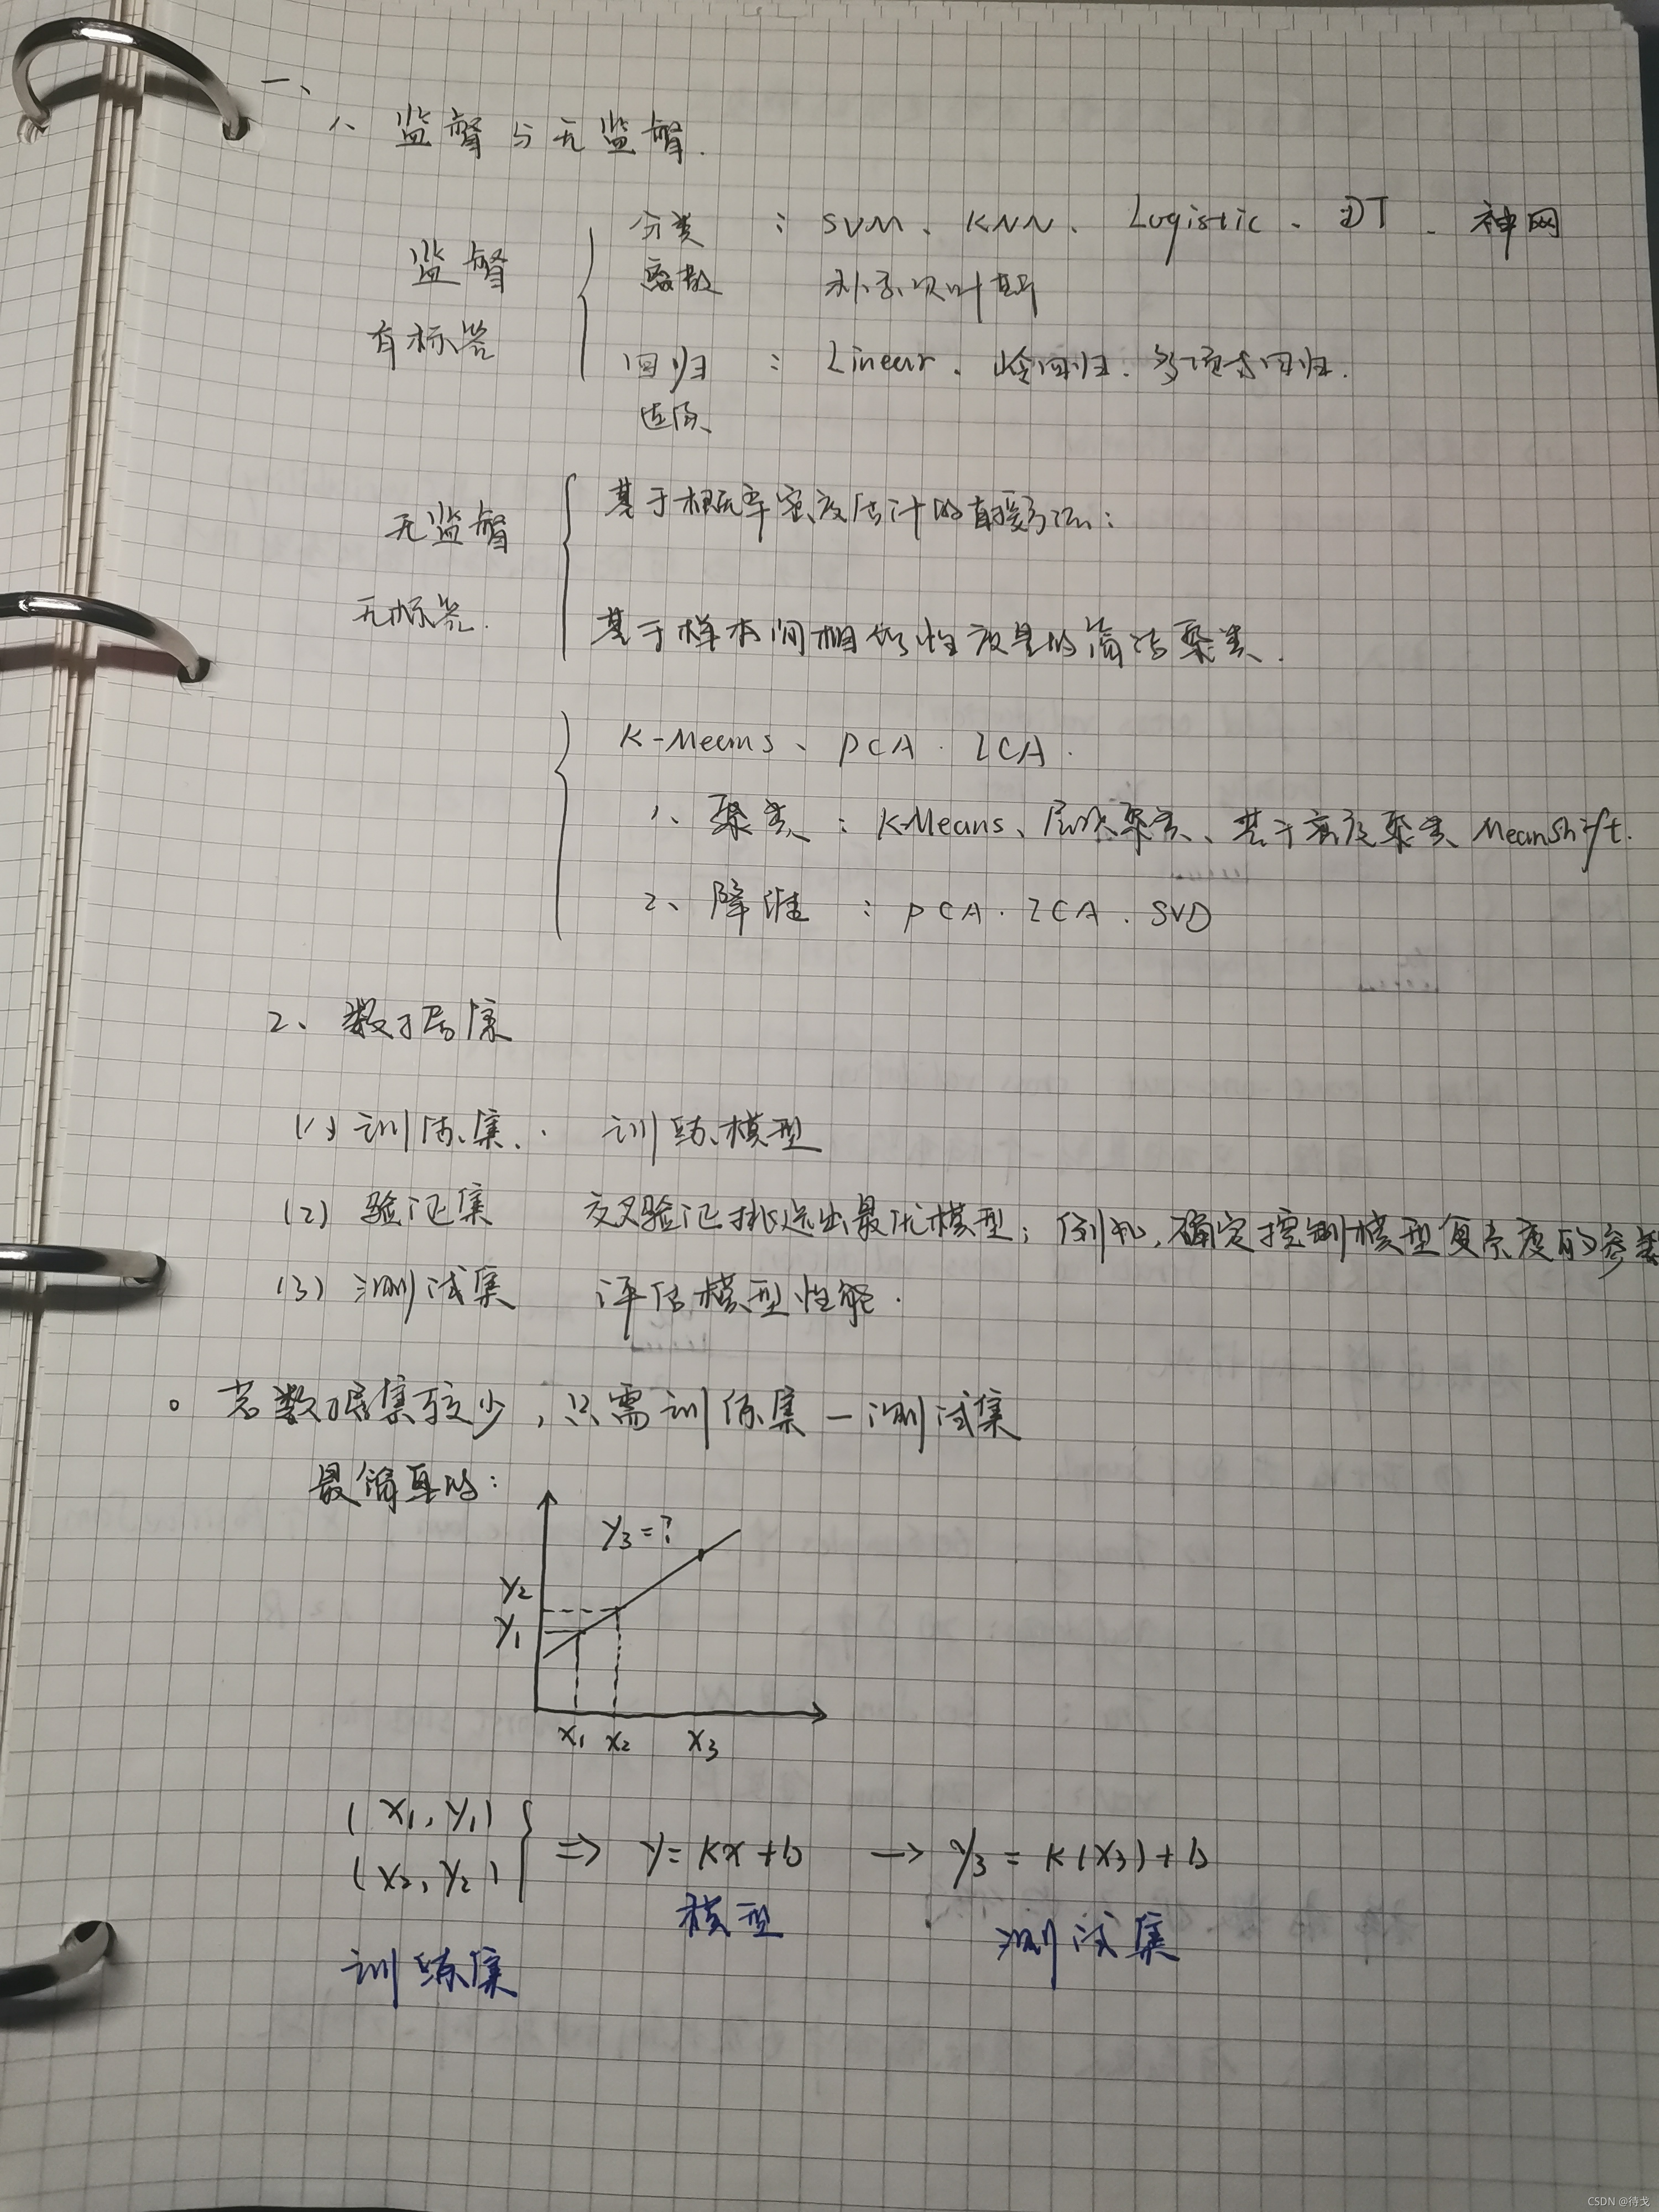 一、
1、监督与无监督.
监督 有标签
分类 : SVM、KNN、Logistic、DT、神网
离散 朴素贝叶斯
回归 : Linear、岭回归、多项式回归.
连续
无监督 无标签.
基于概率密度估计的直接方法:
基于样本间相似性度量的简洁聚类.
K-Means、PCA. ICA.
1、聚类 : K-Means、层次聚类、基于密度聚类 MeanShift.
2、降维 : PCA. ICA. SVD
2、数据集
(1) 训练集: 训练模型
(2) 验证集 交叉验证挑选出最优模型; 例如,确定控制模型复杂度的参数
(3) 测试集 评估模型性能.
。若数据集较少,只需训练集—测试集
最简单的:
y3=?
y2
y1
x1 x2 x3
(x1, y1)
(x2, y2) } ⇒ y=kx+b → y3=k(x3)+b
模型 测试集
训练集
CSDN @待戈